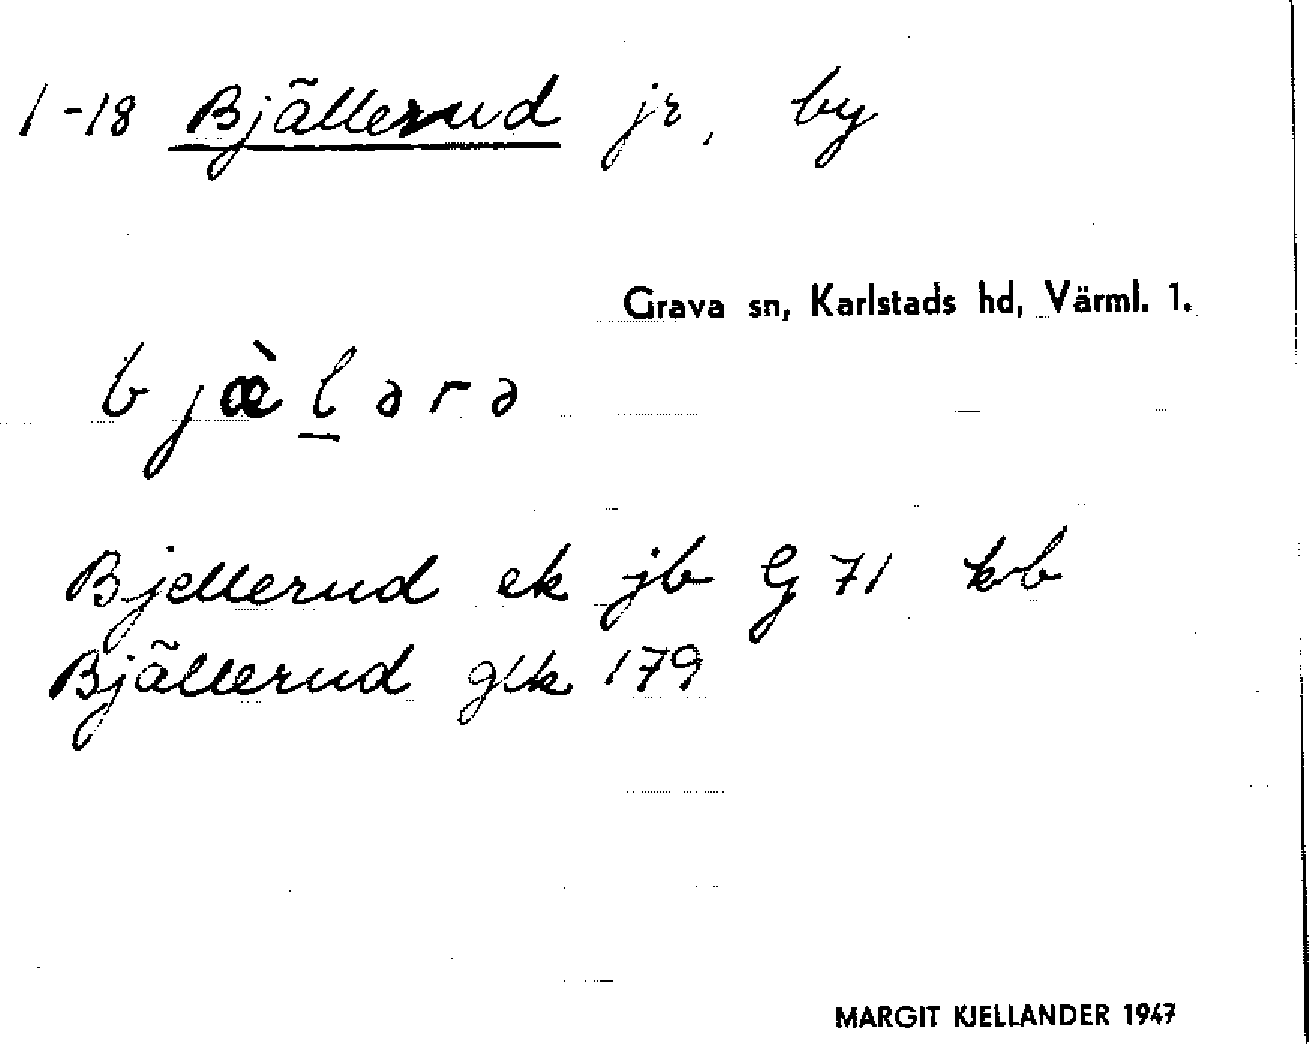 1-18 Bjällerud jr, by
Grava sn, Karlstads hd, Värml. 1.
bjæ̀lərə
Bjellerud ek jb G 71 kb
Bjällerud glk 179
MARGIT KJELLANDER 1947